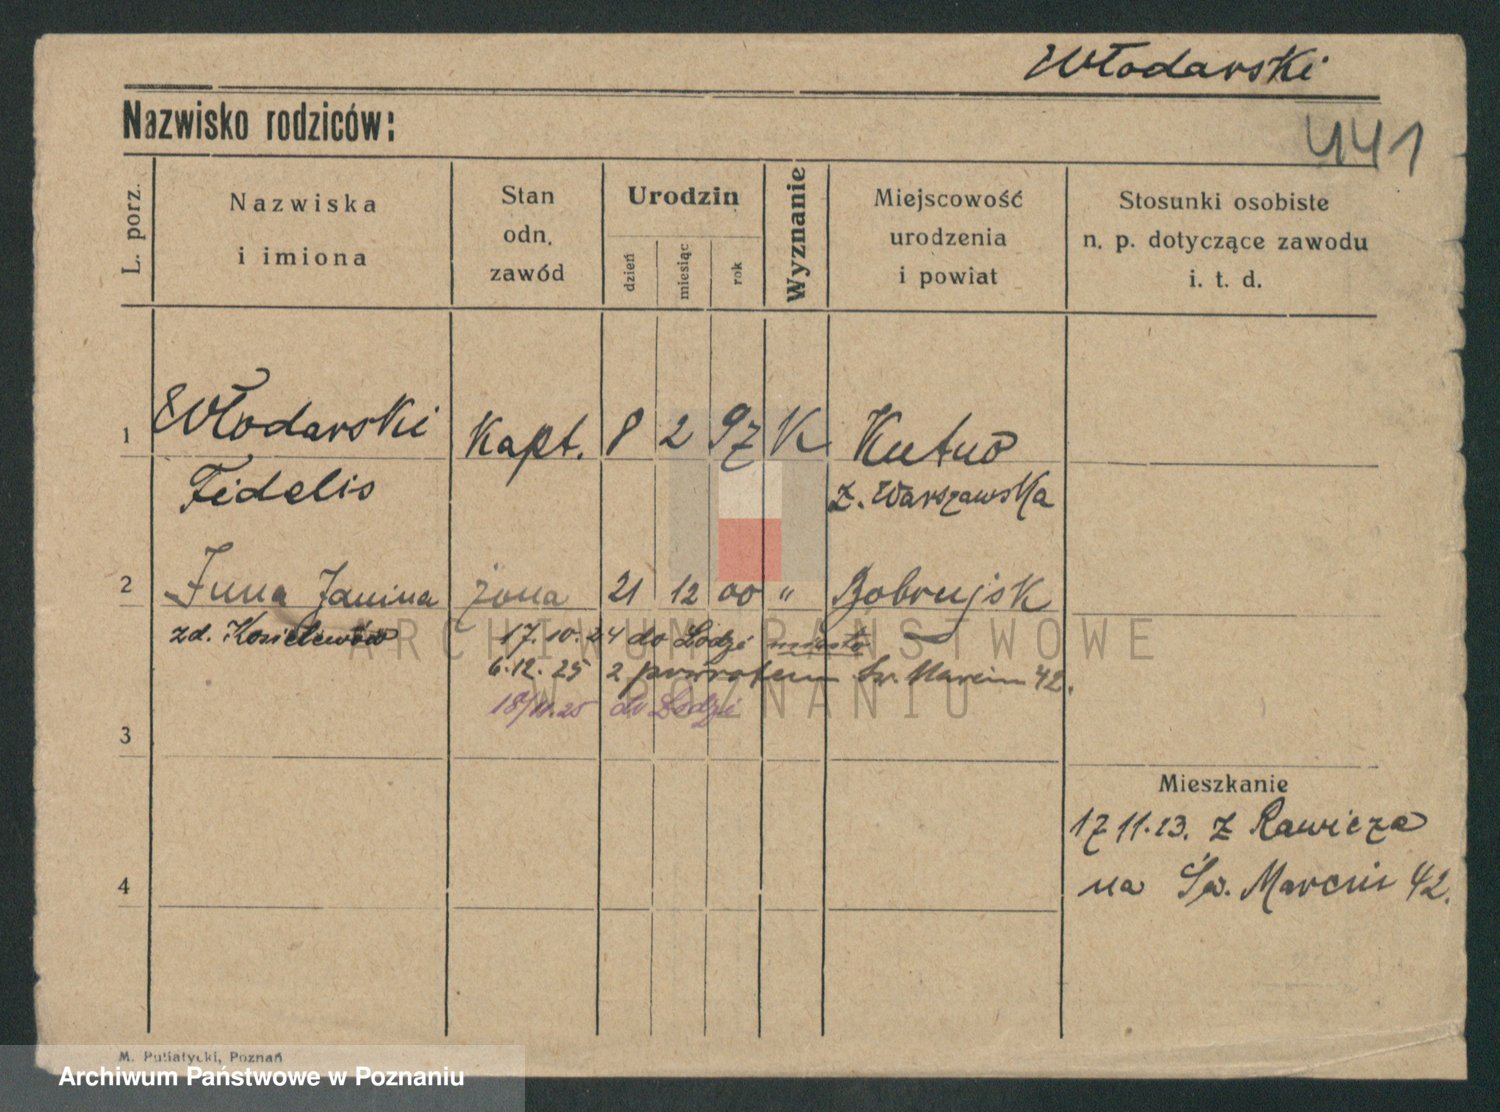 Włodarski
Nazwisko rodziców:
441
L. porz.
Nazwiska
i imiona
Stan
odn.
zawód
Urodzin
dzień
miesiąc
rok
Wyznanie
Miejscowość
urodzenia
i powiat
Stosunki osobiste
n. p. dotyczące zawodu
i. t. d.
1 Włodarski Kapt. 8 2 97 K Kutno
Fidelis z. Warszawska
2 Janina żona 21 12 00 " Bobrujsk
zd.
17.10.24 do Łodzi miasto
6.12.25 z powrotem Św. Marcin 42.
18/11.25 do Łodzi
3
Mieszkanie
17 11.23. z Rawicza
na Św. Marcin 42.
4
ARCHIWUM PAŃSTWOWE
W POZNANIU
M. Putiatycki, Poznań
Archiwum Państwowe w Poznaniu